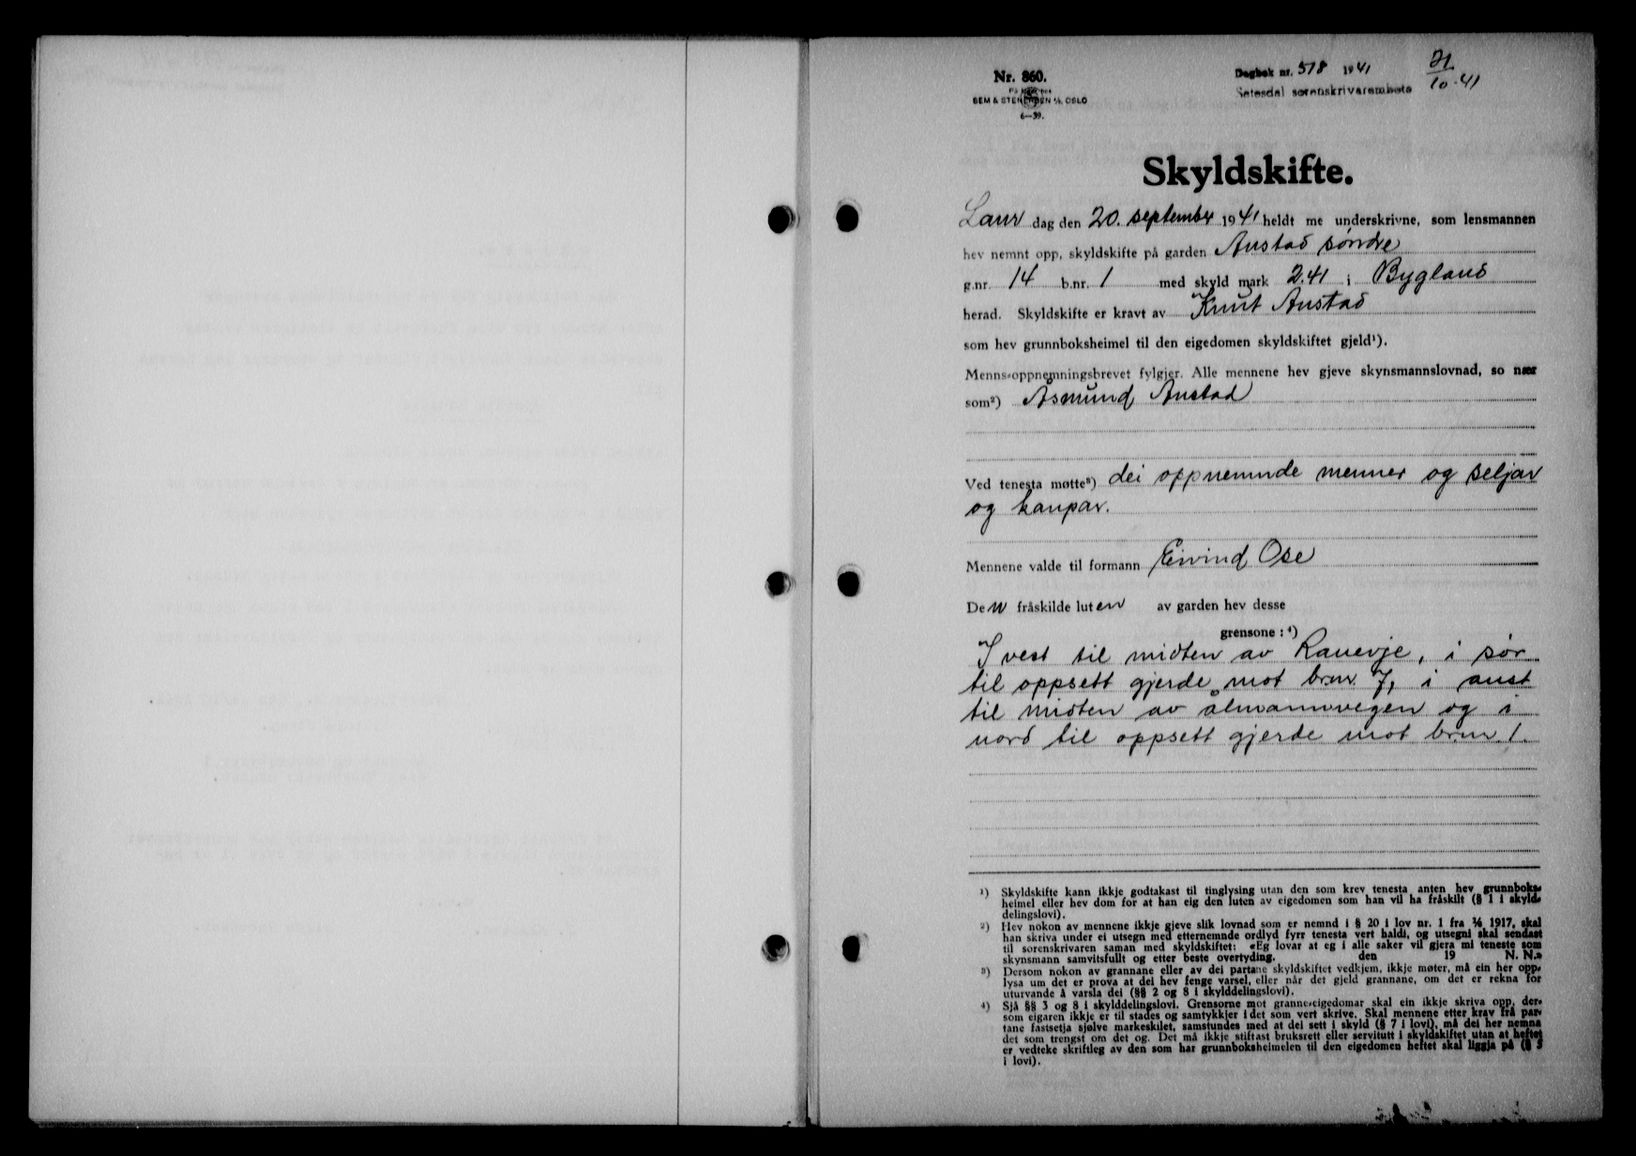 Nr. 860.
SEM & STENERSEN A/S, OSLO
6—39.
Dagbok nr. 518 1941
Setesdal sorenskrivarembete
21/10-41
Skyldskifte.
Laur dag den 20. september 1941 heldt me underskrivne, som lensmannen
hev nemnt opp, skyldskifte på garden Austad søndre
g.nr. 14 b.nr. 1 med skyld mark 2.41 i Bygland
herad. Skyldskifte er kravt av Knut Austad
som hev grunnboksheimel til den eigedomen skyldskiftet gjeld¹).
Menns-oppnemningsbrevet fylgjer. Alle mennene hev gjeve skynsmannslovnad, so nær
som²) Åsmund Austad
Ved tenesta møtte³) dei oppnemnde menner og seljar
og kaupar.
Mennene valde til formann Eivind Ose
Den fråskilde luten av garden hev desse
grensone: ⁴)
I vest til midten av Rauevje, i sør
til oppsett gjerde mot br.nr. 7, i aust
til midten av ålmannvegen og i
nord til oppsett gjerde mot br.nr. 1.
¹) Skyldskifte kann ikkje godtakast til tinglysing utan den som krev tenesta anten hev grunnboks-
heimel eller hev dom for at han eig den luten av eigedomen som han vil ha fråskilt (§ 1 i skyld-
delingslovi).
²) Hev nokon av mennene ikkje gjeve slik lovnad som er nemnd i § 20 i lov nr. 1 fra 1917, skal
han skriva under ei utsegn med etternemnde ordlyd fyrr tenesta vert haldi, og utsegni skal sendast
til sorenskrivaren saman med skyldskiftet: «Eg lovar at eg i alle saker vil gjera mi teneste som
skynsmann samvitsfullt og etter beste overtyding. den 19 N. N.»
³) Dersom nokon av grannane eller av dei partane skyldskiftet vedkjem, ikkje møter, må ein her opp-
lysa um det er prova at dei hev fenge varsel, eller når det gjeld grannane, om det er rekna for
uturvande å varsla dei (§§ 2 og 8 i skylddelingslovi).
⁴) Sjå §§ 3 og 8 i skylddelingslovi. Grensorne mot granne-eigedomar skal ein ikkje skriva opp, der-
som eigaren ikkje er til stades og samtykkjer i det som vert skrive. Skal mennene etter krav frå par-
tane fastsetja sjølve markeskilet, samstundes med at dei sett i skyld (§ 7 i lovi), må dei her nemna
det som trengst om det og. Det må ikkje stiftast bruksrett eller servitutt i skyldskiftet utan at heftet
er vedteke skriftleg av den som har grunnboksheimelen til den eigedomen heftet skal liggja på (§ 3
i lovi).